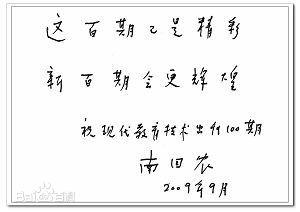 这百期已是精彩
新百期会更辉煌
祝现代教育技术出刊100期
南国农
2009年9月
Bai 百科